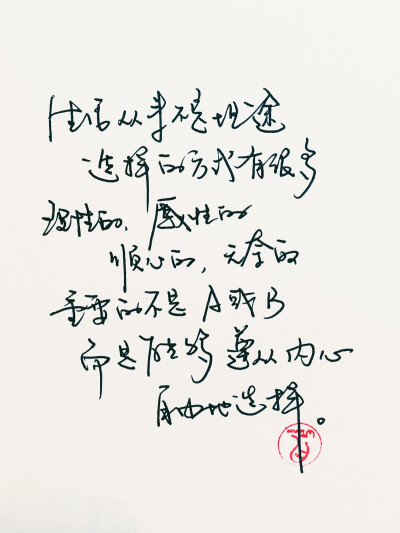 生活从来不是坦途
选择的方式有很多
理性的，感性的
顺心的，无奈的
重要的不是A或B
而是能够遵从内心
自由地选择。